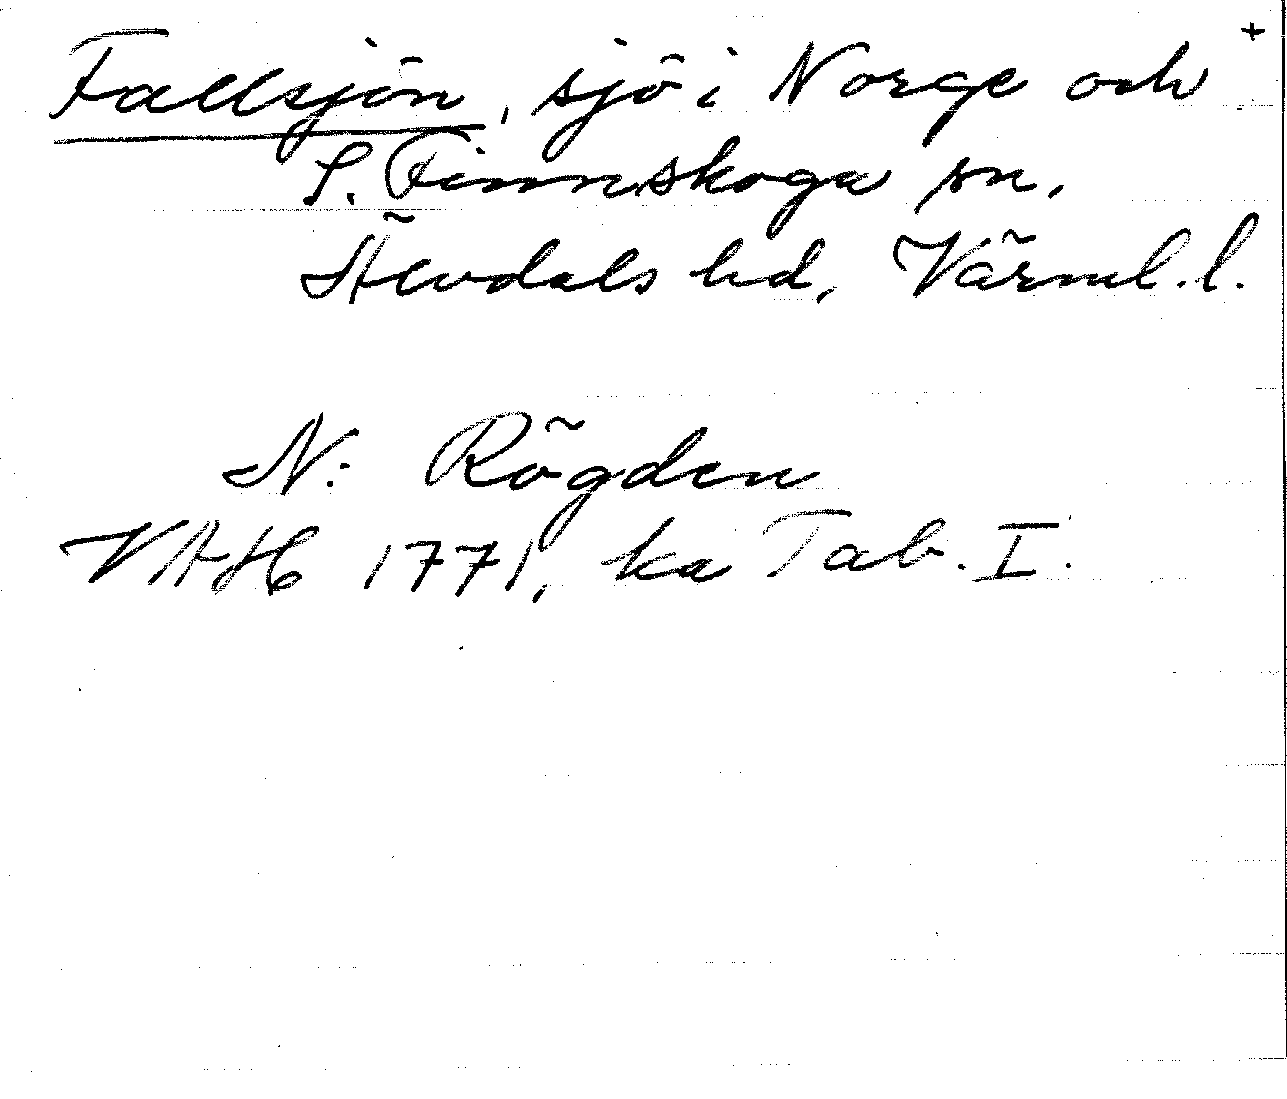 +
Fallsjön, sjö i Norge och
S. Finnskoga sn,
Älvdals hd, Värml. l.
N. Rögden
VAH 1771, ka Tab. I.